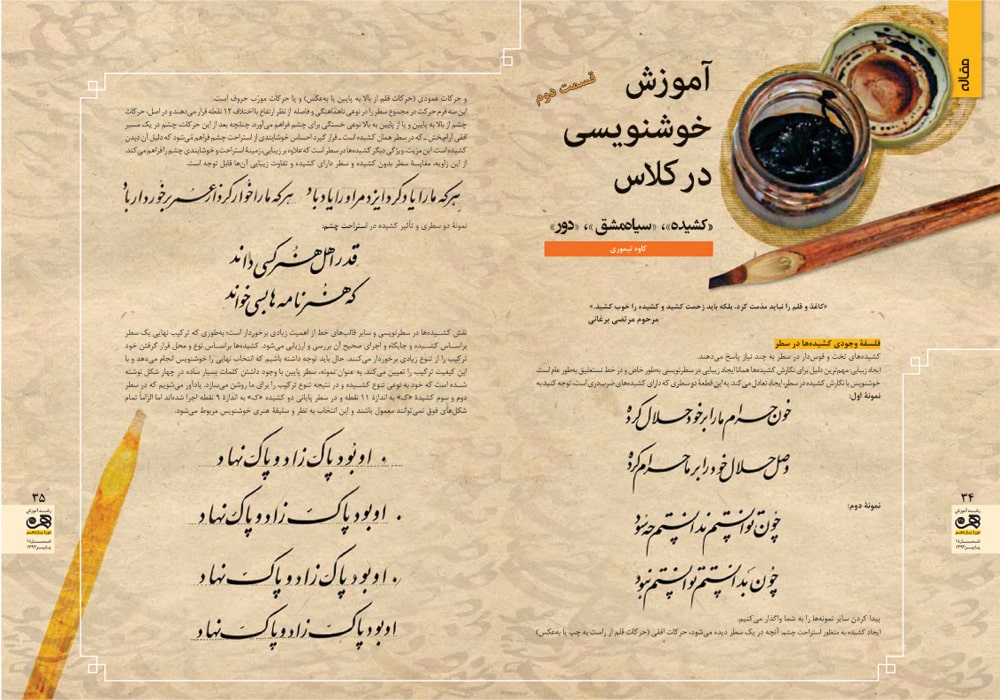 مقاله
آموزش
خوشنویسی
در کلاس
قسمت دوم
«کشیده»، «سیاه‌مشق»، «دور»
کاوه تیموری
«کاغذ و قلم را نباید مذمت کرد، بلکه باید زحمت کشید و کشیده را خوب کشید.»
مرحوم مرتضی برغانی
فلسفهٔ وجودی کشیده‌ها در سطر
کشیده‌های تخت و قوس‌دار در سطر به چند نیاز پاسخ می‌دهند.
ایجاد زیبایی، مهم‌ترین دلیل برای نگارش کشیده‌ها همانا ایجاد زیبایی در سطرنویسی به‌طور خاص و در خط نستعلیق به‌طور عام است.
خوشنویس با نگارش کشیده در سطر، ایجاد تعادل می‌کند. به این قطعهٔ دو سطری که دارای کشیده‌های ضربدری است، توجه کنید به
نمونهٔ اول:
خون حرام ما را بر خود حلال کرده
وصل حلال خود را بر ما حرام کرده
نمونهٔ دوم:
چون توانستم ندانستم چه سود
چون بدانستم توانستم نبود
پیدا کردن سایر نمونه‌ها را به شما واگذار می‌کنیم.
ایجاد کشیده به منظور استراحت چشم: آنچه در یک سطر دیده می‌شود، حرکات افقی (حرکات قلم از راست به چپ یا به‌عکس)
۳۴
رشد آموزش
هنر
دورهٔ یازدهم
شمارهٔ ۱
پاییز ۱۳۹۲
و حرکات عمودی (حرکات قلم از بالا به پایین یا به‌عکس) و یا حرکات مورّب حروف است.
این سه فرم حرکت در مجموع سطر را در نوعی ناهماهنگی و فاصله از نظر ارتفاع با اختلاف ۱۲ نقطه قرار می‌دهند و در اصل، حرکات
چشم از بالا به پایین و یا از پایین به بالا نوعی خستگی برای چشم فراهم می‌آورد. چنانچه بعد از این حرکات، چشم در یک مسیر
افقی آرام‌بخش ـ که در سطر همان کشیده است ـ قرار گیرد احساس خوشایندی از استراحت چشم فراهم می‌شود که دلیل آن دیدن
کشیده است. این مزیّت، ویژگی دیگر کشیده‌ها در سطر است که علاوه بر زیبایی، زمینهٔ استراحت و خوشایندی چشم را فراهم می‌کند.
از این زاویه، مقایسهٔ سطر بدون کشیده و سطر دارای کشیده و تفاوت زیبایی آن‌ها قابل توجه است.
هر که ما را یاد کرد ایزد مر او را یاد باد هر که ما را خوار کرد از عمر برخوردار باد
نمونهٔ دو سطری و تأثیر کشیده در استراحت چشم:
قدر اهل هنر کسی داند
که هنر نامه ها بسی خواند
نقش کشیده‌ها در سطرنویسی و سایر قالب‌های خط از اهمیت زیادی برخوردار است؛ به‌طوری که ترکیب نهایی یک سطر
براساس کشیده و جایگاه و اجرای صحیح آن بررسی و ارزیابی می‌شود. کشیده‌ها براساس نوع و محل قرار گرفتن خود
ترکیب را از تنوع زیادی برخوردار می‌کنند. حال باید توجه داشته باشیم که انتخاب نهایی را خوشنویس انجام می‌دهد و با
این کیفیت ترکیب را تعیین می‌کند. به عنوان نمونه، سطر پایین با وجود داشتن کلمات بسیار ساده در چهار شکل نوشته
شده است که خود به نوعی تنوع کشیده و در نتیجه تنوع ترکیب را برای ما روشن می‌سازد. یادآور می‌شویم که در سطر
دوم و سوم کشیدهٔ «ک» به اندازهٔ ۱۱ نقطه و در سطر پایانی دو کشیده «ک» به اندازهٔ ۹ نقطه اجرا شده‌اند اما الزاماً تمام
شکل‌های فوق نمی‌توانند معمول باشند و این انتخاب به نظر و سلیقهٔ هنری خوشنویس مربوط می‌شود.
او بود پاک زاد و پاک نهاد
او بود پاک زاد و پاک نهاد
او بود پاک زاد و پاک نهاد
او بود پاک زاد و پاک نهاد
۳۵
رشد آموزش
هنر
دورهٔ یازدهم
شمارهٔ ۱
پاییز ۱۳۹۲